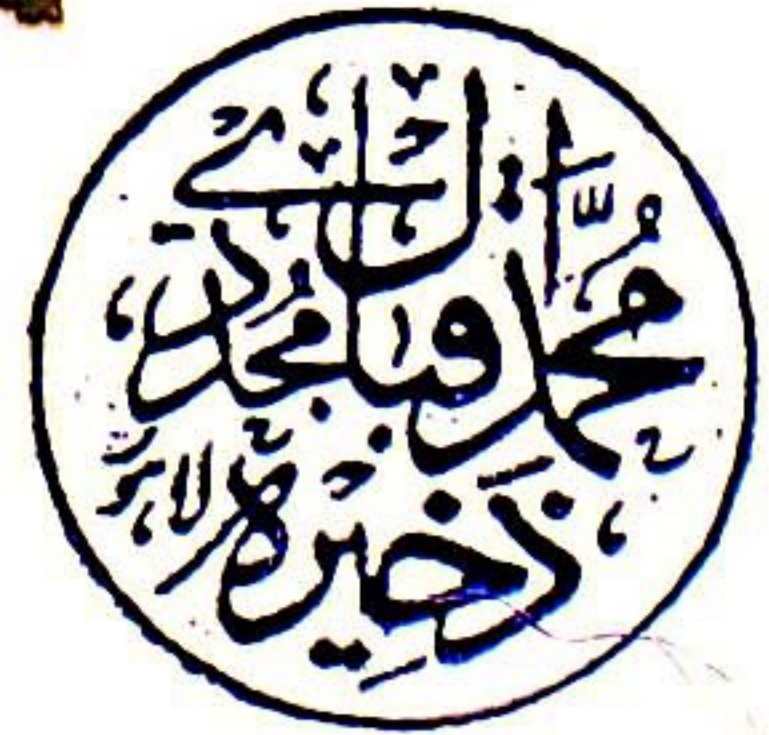 مُحَمَّد اقبال مُجَدِّدی
ذَخِیرہ لاہور